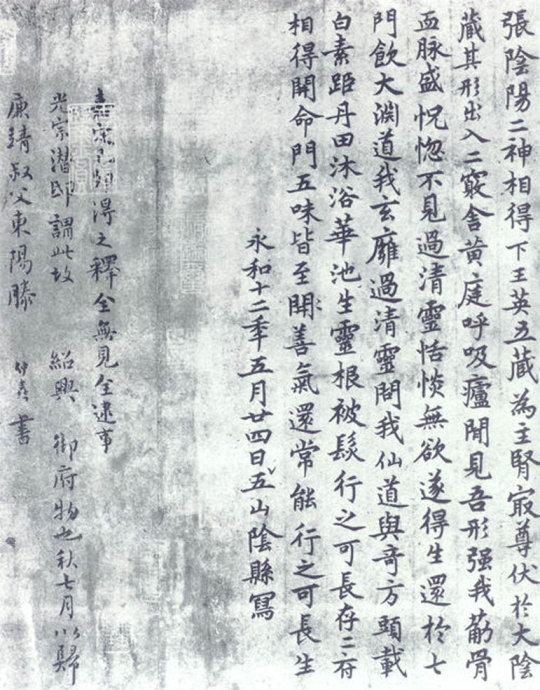 張陰陽二神相得下王英五藏為主腎㝡尊伏於大陰
藏其形出入二竅舍黃庭呼吸廬間見吾形强我筋骨
血脉盛恍惚不見過清靈恬惔無欲遂得生還於七
門飲大淵道我玄廱過清靈問我仙道與奇方頭載
白素距丹田沐浴華池生靈根被髮行之可長存二府
相得開命門五味皆至開善氣還常能行之可長生
永和十二年五月廿四日五山陰縣寫
得之釋全無見全逮事
光宗潛邸謂此故 紹興 御府物也秋七月以歸
靖叔父東陽滕 書